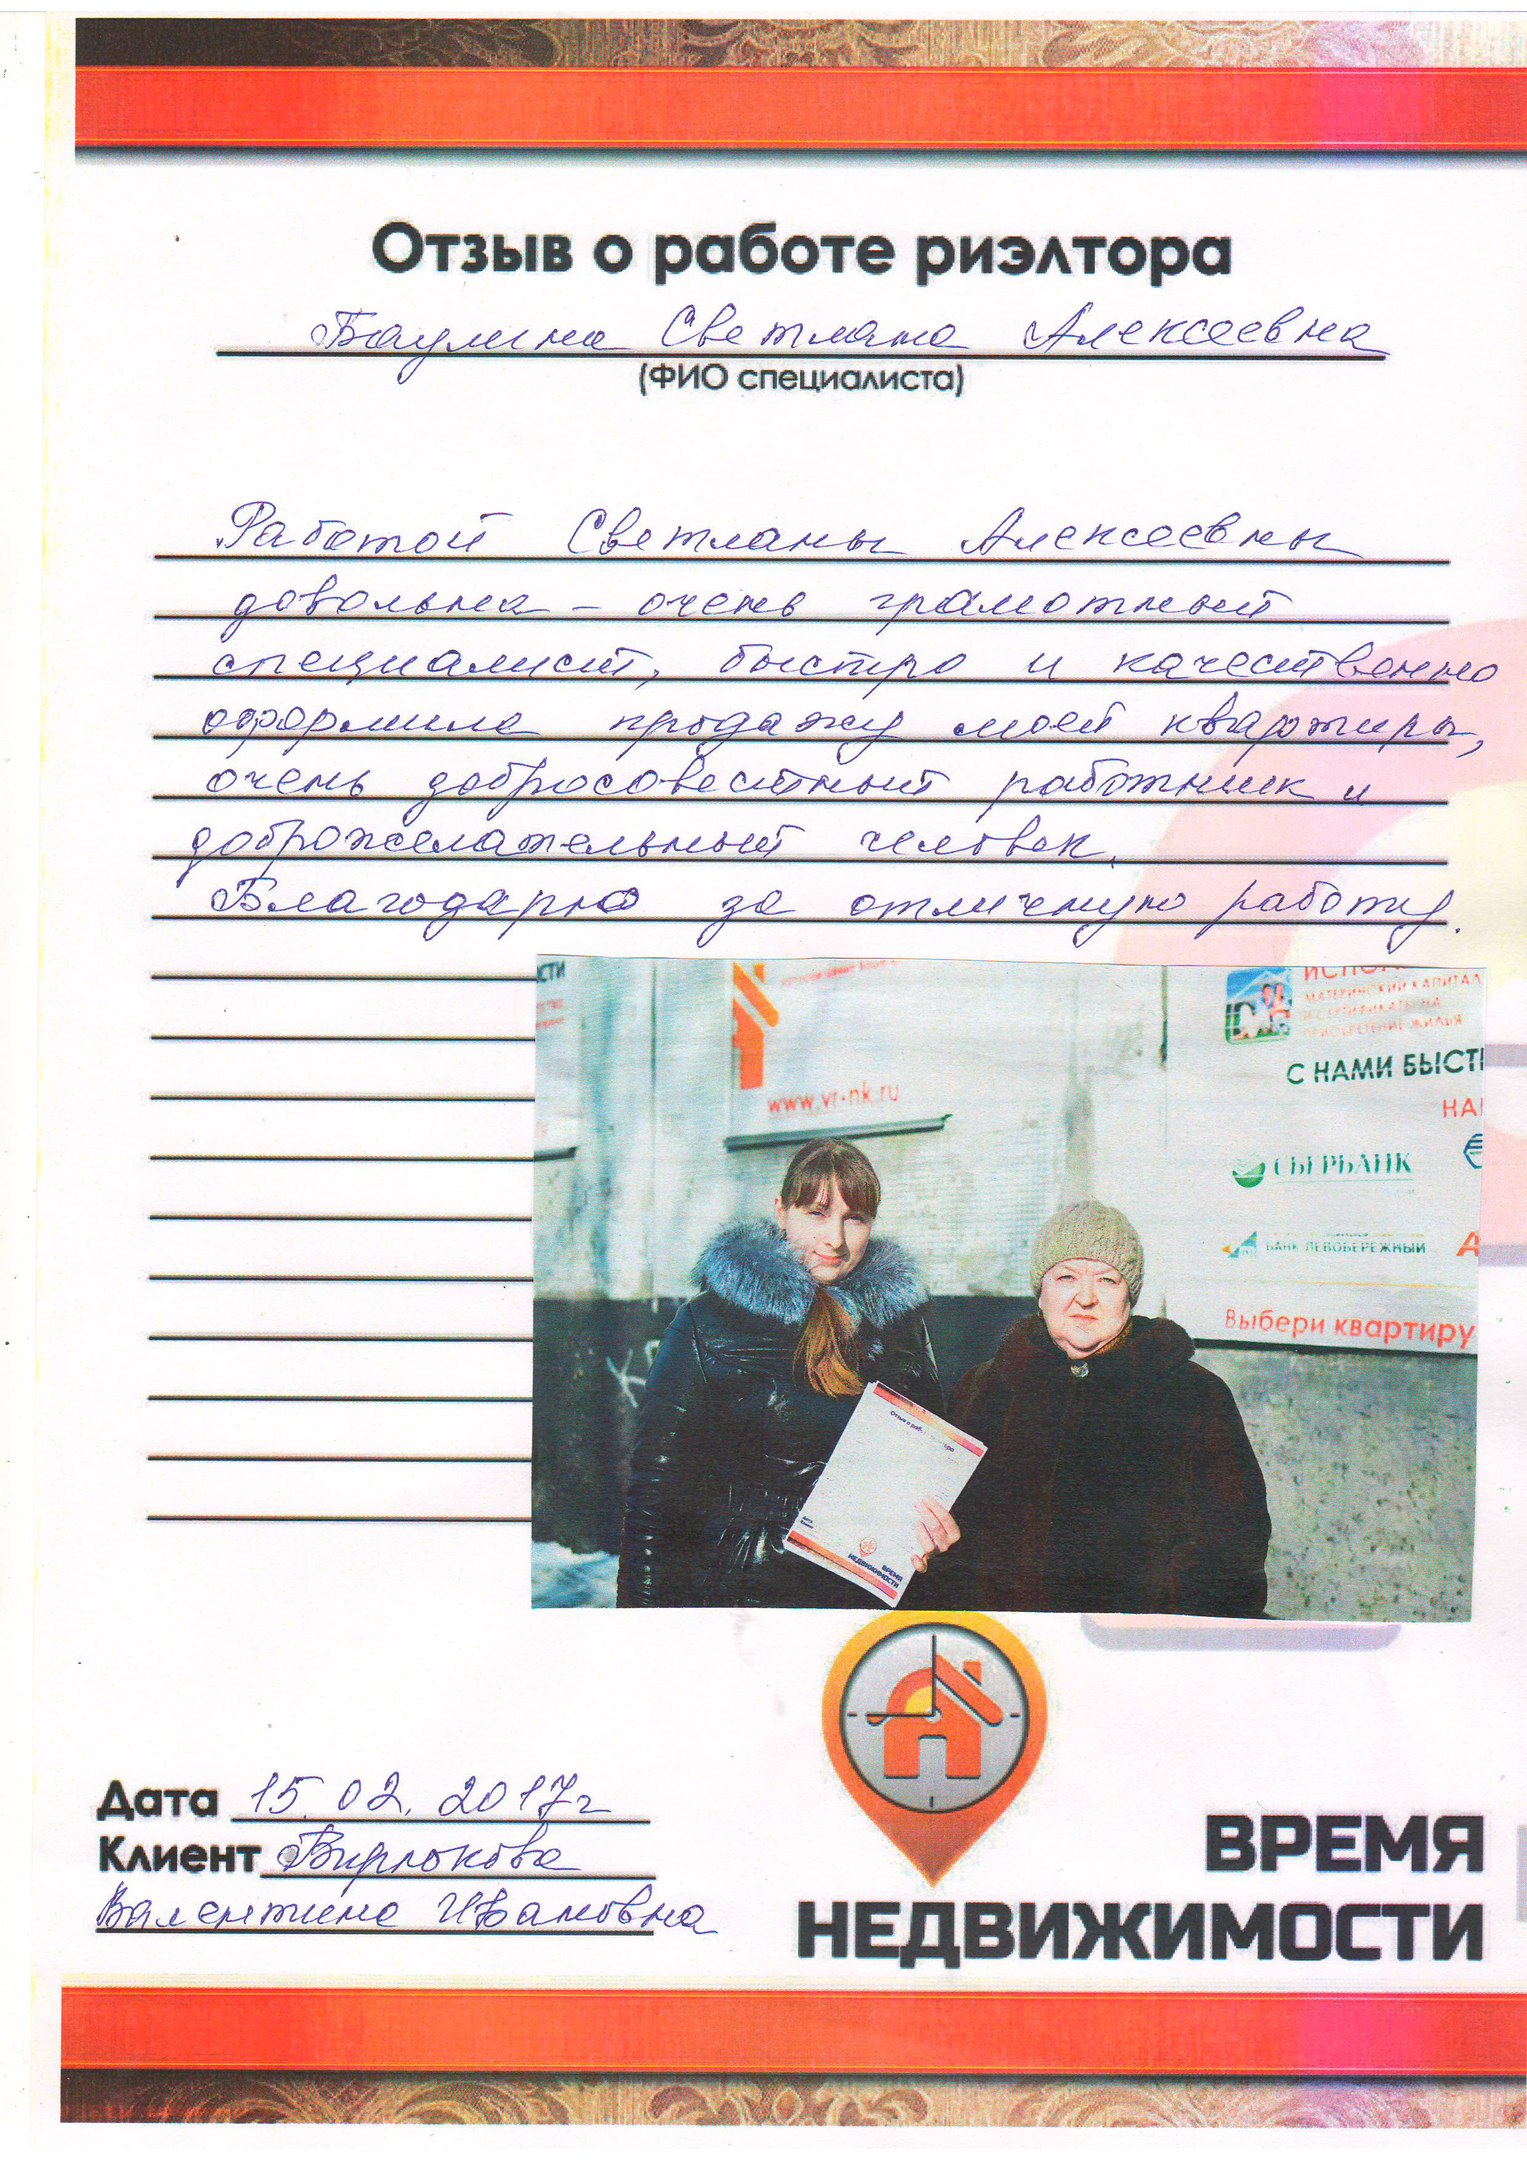 Отзыв о работе риэлтора
Баулина Светлана Алексеевна
(ФИО специалиста)
Работой Светланы Алексеевны
довольна – очень грамотный
специалист, быстро и качественно
оформила продажу моей квартиры,
очень добросовестный работник и
доброжелательный человек.
Благодарю за отличную работу.
МАТЕРИНСКИЙ КАПИТАЛ
И СЕРТИФИКАТЫ НА
ПРИОБРЕТЕНИЕ ЖИЛЬЯ
С НАМИ БЫСТ
НА
www.vr-nk.ru
СБЕРБАНК
БАНК ЛЕВОБЕРЕЖНЫЙ
Выбери квартиру
ВРЕМЯ
НЕДВИЖИМОСТИ
Дата 15.02.2017г
Клиент Вирюкова
Валентина Ивановна
ВРЕМЯ
НЕДВИЖИМОСТИ